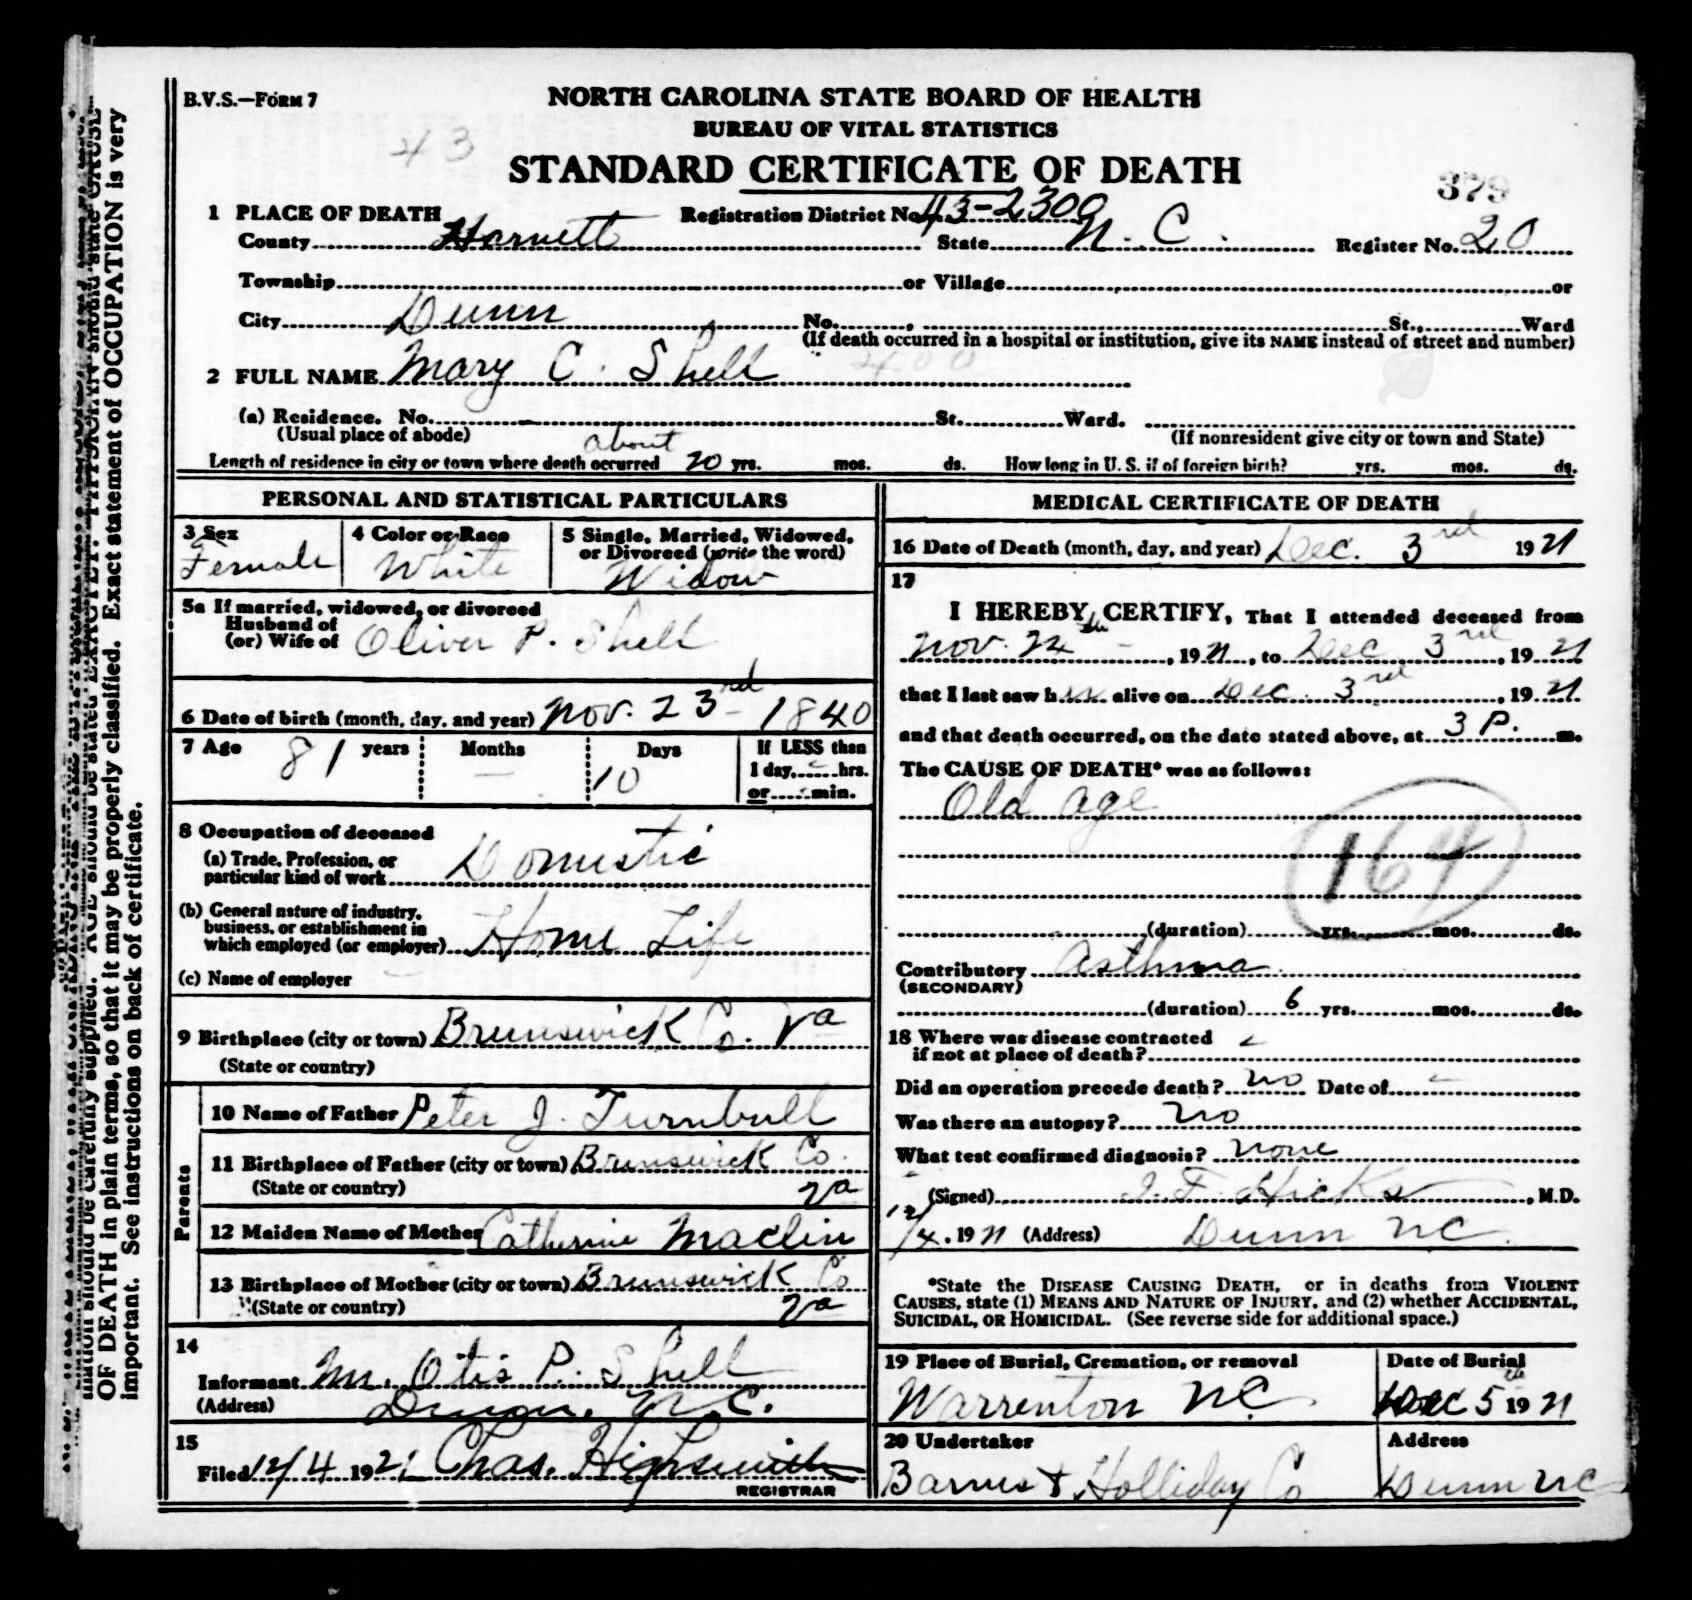 B.V.S.—FORM 7
NORTH CAROLINA STATE BOARD OF HEALTH
BUREAU OF VITAL STATISTICS
43
STANDARD CERTIFICATE OF DEATH
379
1 PLACE OF DEATH Registration District No. 43-2300
County Harnett State N. C. Register No. 20
Township or Village or
City Dunn No. , St., Ward
(If death occurred in a hospital or institution, give its NAME instead of street and number)
2 FULL NAME Mary C. Shell
400
(a) Residence. No. St. Ward.
(Usual place of abode) (If nonresident give city or town and State)
Length of residence in city or town where death occurred about 20 yrs. mos. ds. How long in U. S. if of foreign birth? yrs. mos. ds.
PERSONAL AND STATISTICAL PARTICULARS
3 Sex 4 Color or Race 5 Single, Married, Widowed,
or Divorced (write the word)
Female White Widow
5a If married, widowed, or divorced
Husband of
(or) Wife of Oliver P. Shell
6 Date of birth (month, day, and year) Nov. 23rd 1840
7 Age 81 years Months — Days 10 If LESS than
1 day, hrs.
or min.
8 Occupation of deceased
(a) Trade, Profession, or
particular kind of work Domestic
(b) General nature of industry,
business, or establishment in
which employed (or employer) Home Life
(c) Name of employer
9 Birthplace (city or town) Brunswick Co. Va
(State or country)
Parents
10 Name of Father Peter J. Turnbull
11 Birthplace of Father (city or town) Brunswick Co.
(State or country) Va
12 Maiden Name of Mother Catherine Maclin
13 Birthplace of Mother (city or town) Brunswick Co
(State or country) Va
14
Informant Mr. Otis P. Shell
(Address) Dunn, N.C.
15
Filed 12/4 1921 Chas. Highsmith
REGISTRAR
MEDICAL CERTIFICATE OF DEATH
16 Date of Death (month, day, and year) Dec. 3rd 1921
17
I HEREBY CERTIFY, That I attended deceased from
Nov. 24th — , 1921, to Dec 3rd, 1921
that I last saw her alive on Dec. 3rd, 1921
and that death occurred, on the date stated above, at 3 P. m.
The CAUSE OF DEATH* was as follows:
Old age
164
(duration) yrs. mos. ds.
Contributory Asthma
(SECONDARY)
(duration) 6 yrs. mos. ds.
18 Where was disease contracted
if not at place of death?
Did an operation precede death? no Date of —
Was there an autopsy? no
What test confirmed diagnosis? none
(Signed) J. F. Hicks, M.D.
12/4, 1921 (Address) Dunn NC.
*State the DISEASE CAUSING DEATH, or in deaths from VIOLENT
CAUSES, state (1) MEANS AND NATURE OF INJURY, and (2) whether ACCIDENTAL,
SUICIDAL, OR HOMICIDAL. (See reverse side for additional space.)
19 Place of Burial, Cremation, or removal Date of Burial
Warrenton NC. Dec 5th 1921
20 Undertaker Address
Barnes & Holliday Co Dunn NC
mation should be carefully supplied. AGE should be stated EXACTLY. PHYSICIAN should state CAUSE
OF DEATH in plain terms, so that it may be properly classified. Exact statement of OCCUPATION is very
important. See instructions on back of certificate.